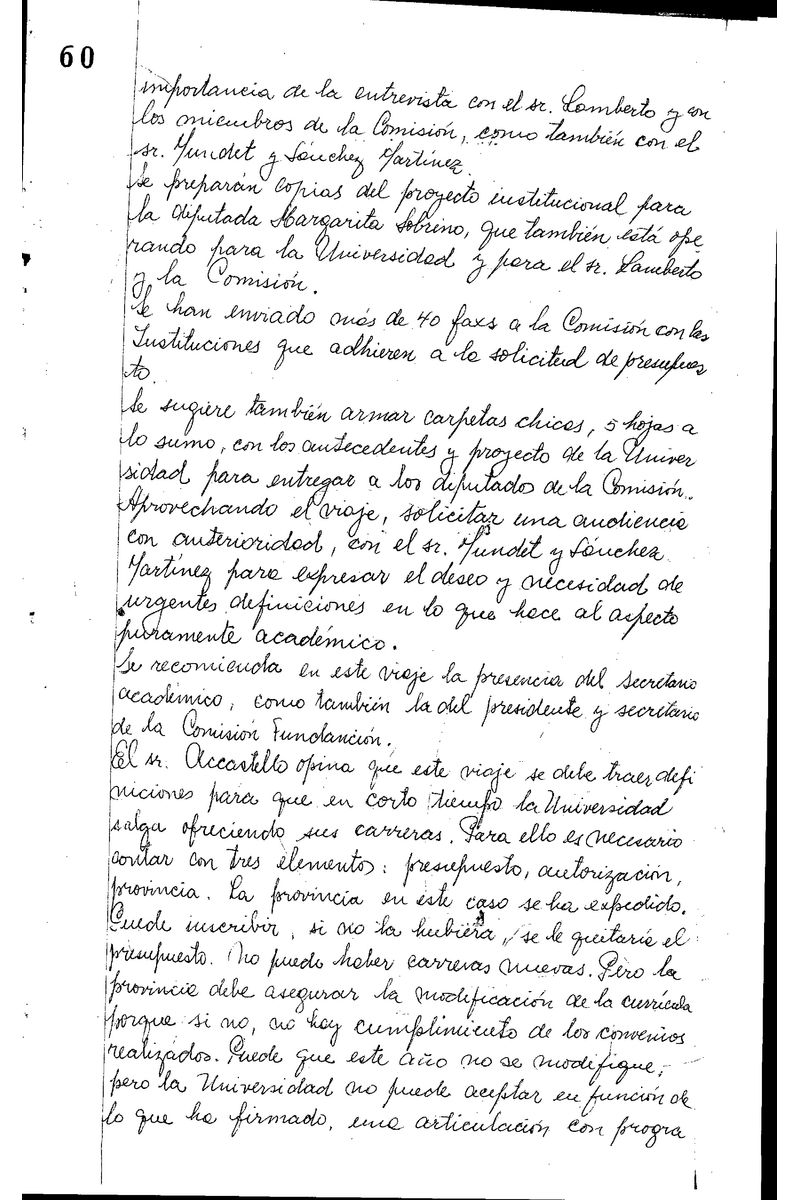 60
importancia de la entrevista con el sr. Lamberto y con
los miembros de la Comisión, como también con el
sr. Mundet y Sánchez Martínez.
Se preparán copias del proyecto institucional para
la diputada Margarita Sobrino, que también está ope
rando para la Universidad y para el sr. Lamberto
y la Comisión.
Se han enviado más de 40 faxs a la Comisión con las
Instituciones que adhieren a la solicitud de presupues
to.
Se sugiere también armar carpetas chicas, 5 hojas a
lo sumo, con los antecedentes y proyecto de la Univer
sidad para entregar a los diputados de la Comisión.
Aprovechando el viaje, solicitar una audiencia
con anterioridad, con el sr. Mundet y Sánchez
Martínez para expresar el deseo y necesidad de
urgentes definiciones en lo que hace al aspecto
puramente académico.
Se recomienda en este viaje la presencia del secretario
académico, como también la del presidente y secretario
de la Comisión Fundanción.
El sr. Accastello opina que este viaje se debe traer defi
niciones para que en corto tiempo la Universidad
salga ofreciendo sus carreras. Para ello es necesario
contar con tres elementos: presupuesto, autorización,
provincia. La provincia en este caso se ha expedido.
Puede inscribir, si no la hubiera, se le quitaría el
presupuesto. No puede haber carreras nuevas. Pero la
provincia debe asegurar la modificación de la currícula
porque si no, no hay cumplimiento de los convenios
realizados. Puede que este año no se modifique,
pero la Universidad no puede aceptar en función de
lo que ha firmado, una articulación con progra